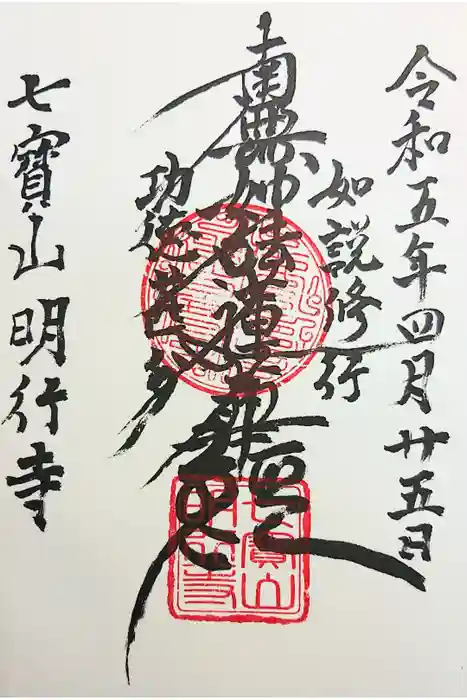 令和五年四月廿五日
如説修行
南無妙法蓮華経
功徳甚多
七寶山 明行寺
七寶山
明行寺